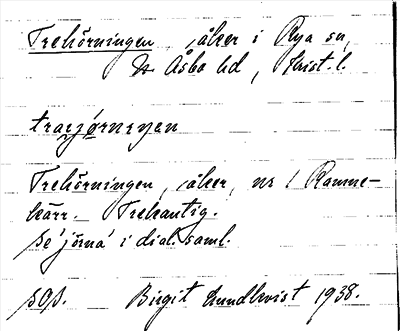 Trehörningen, åker i Rya sn,
N. Åsbo hd, Krist. l.
Trehörningen, åker, nr 1 Ramne-
kärr. Trekantig.
se 'jörna' i dial. saml.
Birgit Lundkvist 1938.